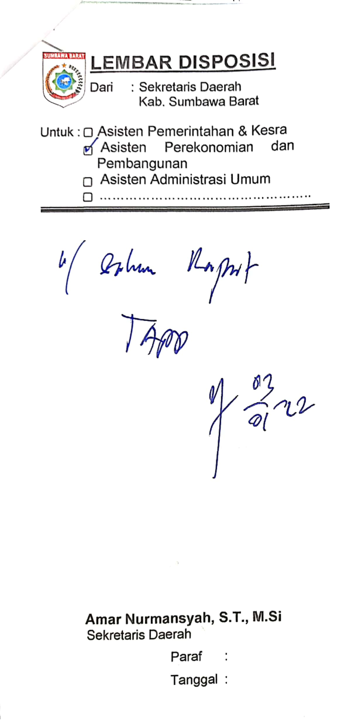 SUMBAWA BARAT
LEMBAR DISPOSISI
Dari : Sekretaris Daerah
Kab. Sumbawa Barat
Untuk : ☐ Asisten Pemerintahan & Kesra
☑ Asisten Perekonomian dan
Pembangunan
☐ Asisten Administrasi Umum
☐ ................................................
Rapat
TAPD
03
01 22
Amar Nurmansyah, S.T., M.Si
Sekretaris Daerah
Paraf :
Tanggal :